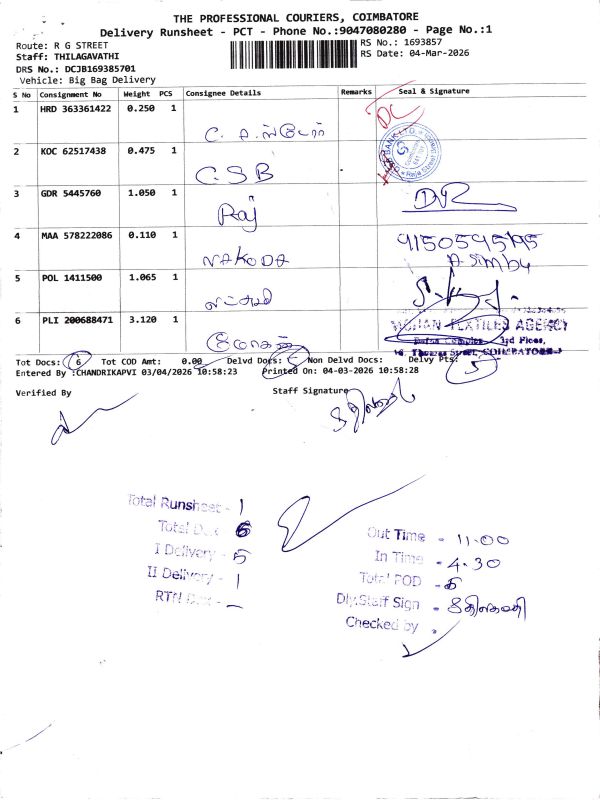 THE PROFESSIONAL COURIERS, COIMBATORE
Delivery Runsheet - PCT - Phone No.:9047080280 - Page No.:1
Route: R G STREET
RS No.: 1693857
Staff: THILAGAVATHI
RS Date: 04-Mar-2026
DRS No.: DCJB169385701
Vehicle: Big Bag Delivery
S No Consignment No Weight PCS Consignee Details Remarks Seal & Signature
1 HRD 363361422 0.250 1
DC
2 KOC 62517438 0.475 1
CSB
3 GDR 5445760 1.050 1
Raj
4 MAA 578222086 0.110 1
NAKODA
5 POL 1411500 1.065 1
6 PLI 200688471 3.120 1
MOHAN TEXTILES AGENCY
3rd Floor,
COIMBATORE
Tot Docs: 6 Tot COD Amt: 0.00 Delvd Docs: Non Delvd Docs: Delvy Pts: 5
Entered By :CHANDRIKAPVI 03/04/2026 10:58:23 Printed On: 04-03-2026 10:58:28
Verified By Staff Signature
Total Runsheet - 1
Total 6
I Delivery - 5
II Delivery - 1
RTN -
Out Time - 11.00
In Time - 4.30
Total POD - 6
Dly.Staff Sign -
Checked by